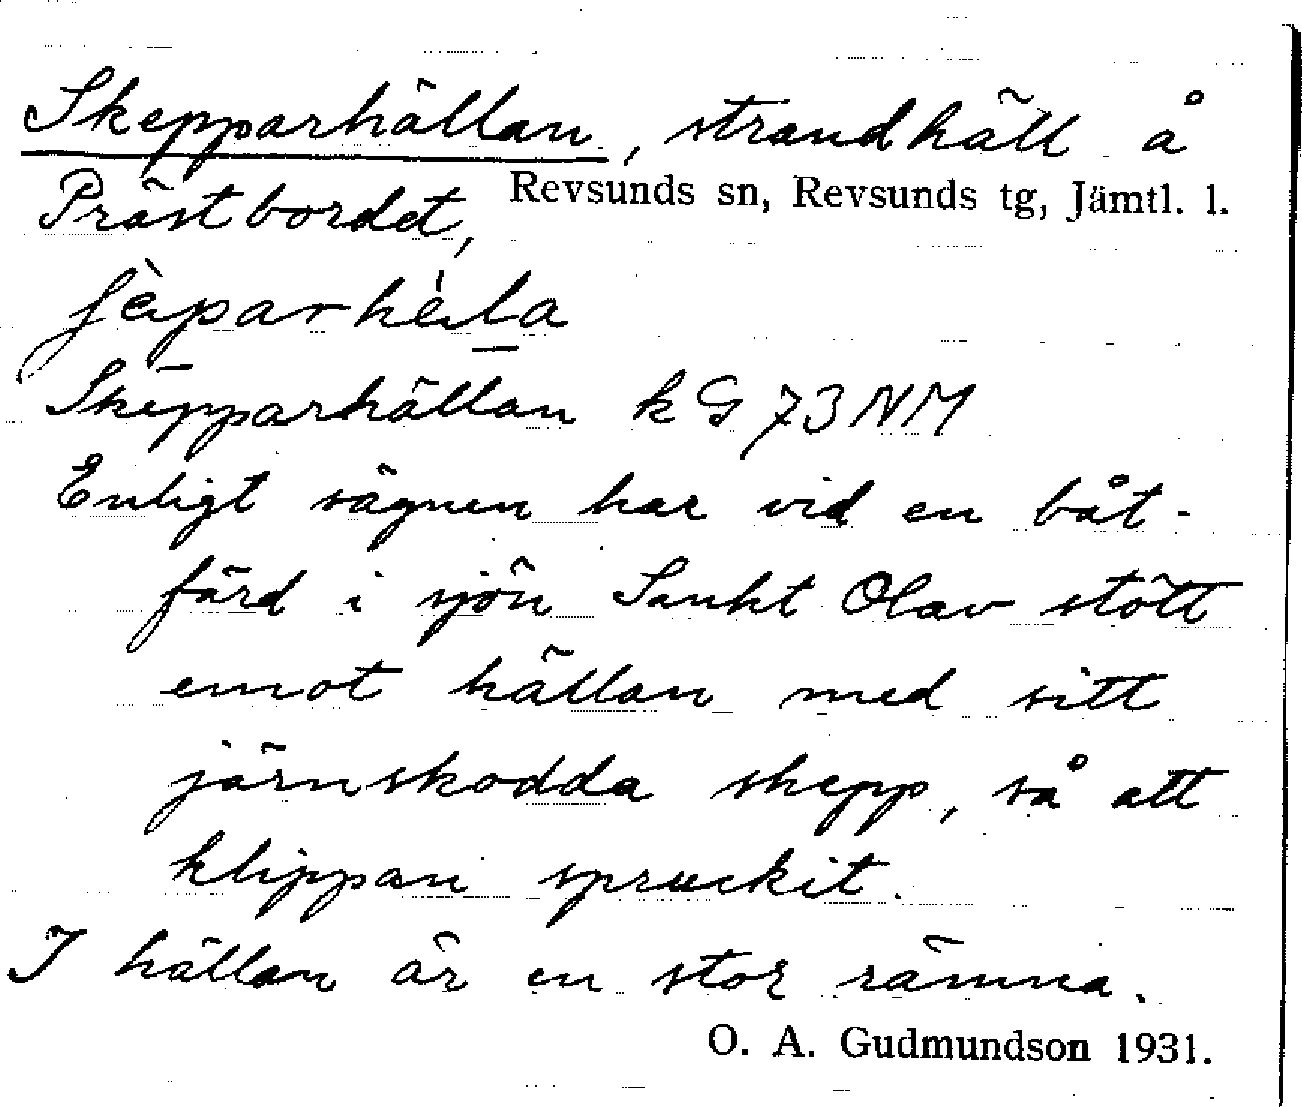 Skepparhällan, strandhäll å
Prästbordet, Revsunds sn, Revsunds tg, Jämtl. l.
Skepparhällan k G 73 NM
Enligt sägnen har vid en båt-
färd i sjön Sankt Olav stött
emot hällan med sitt
järnskodda skepp, så att
klippan spruckit.
I hällan är en stor rämna.
O. A. Gudmundson 1931.